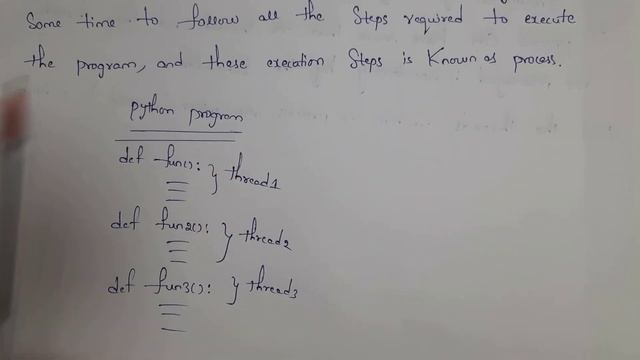 Some time to follow all the Steps required to execute
the program, and these execution Steps is Known as process.
python program
def fun(): } thread1
def fun2(): } thread2
def fun3(): } thread3